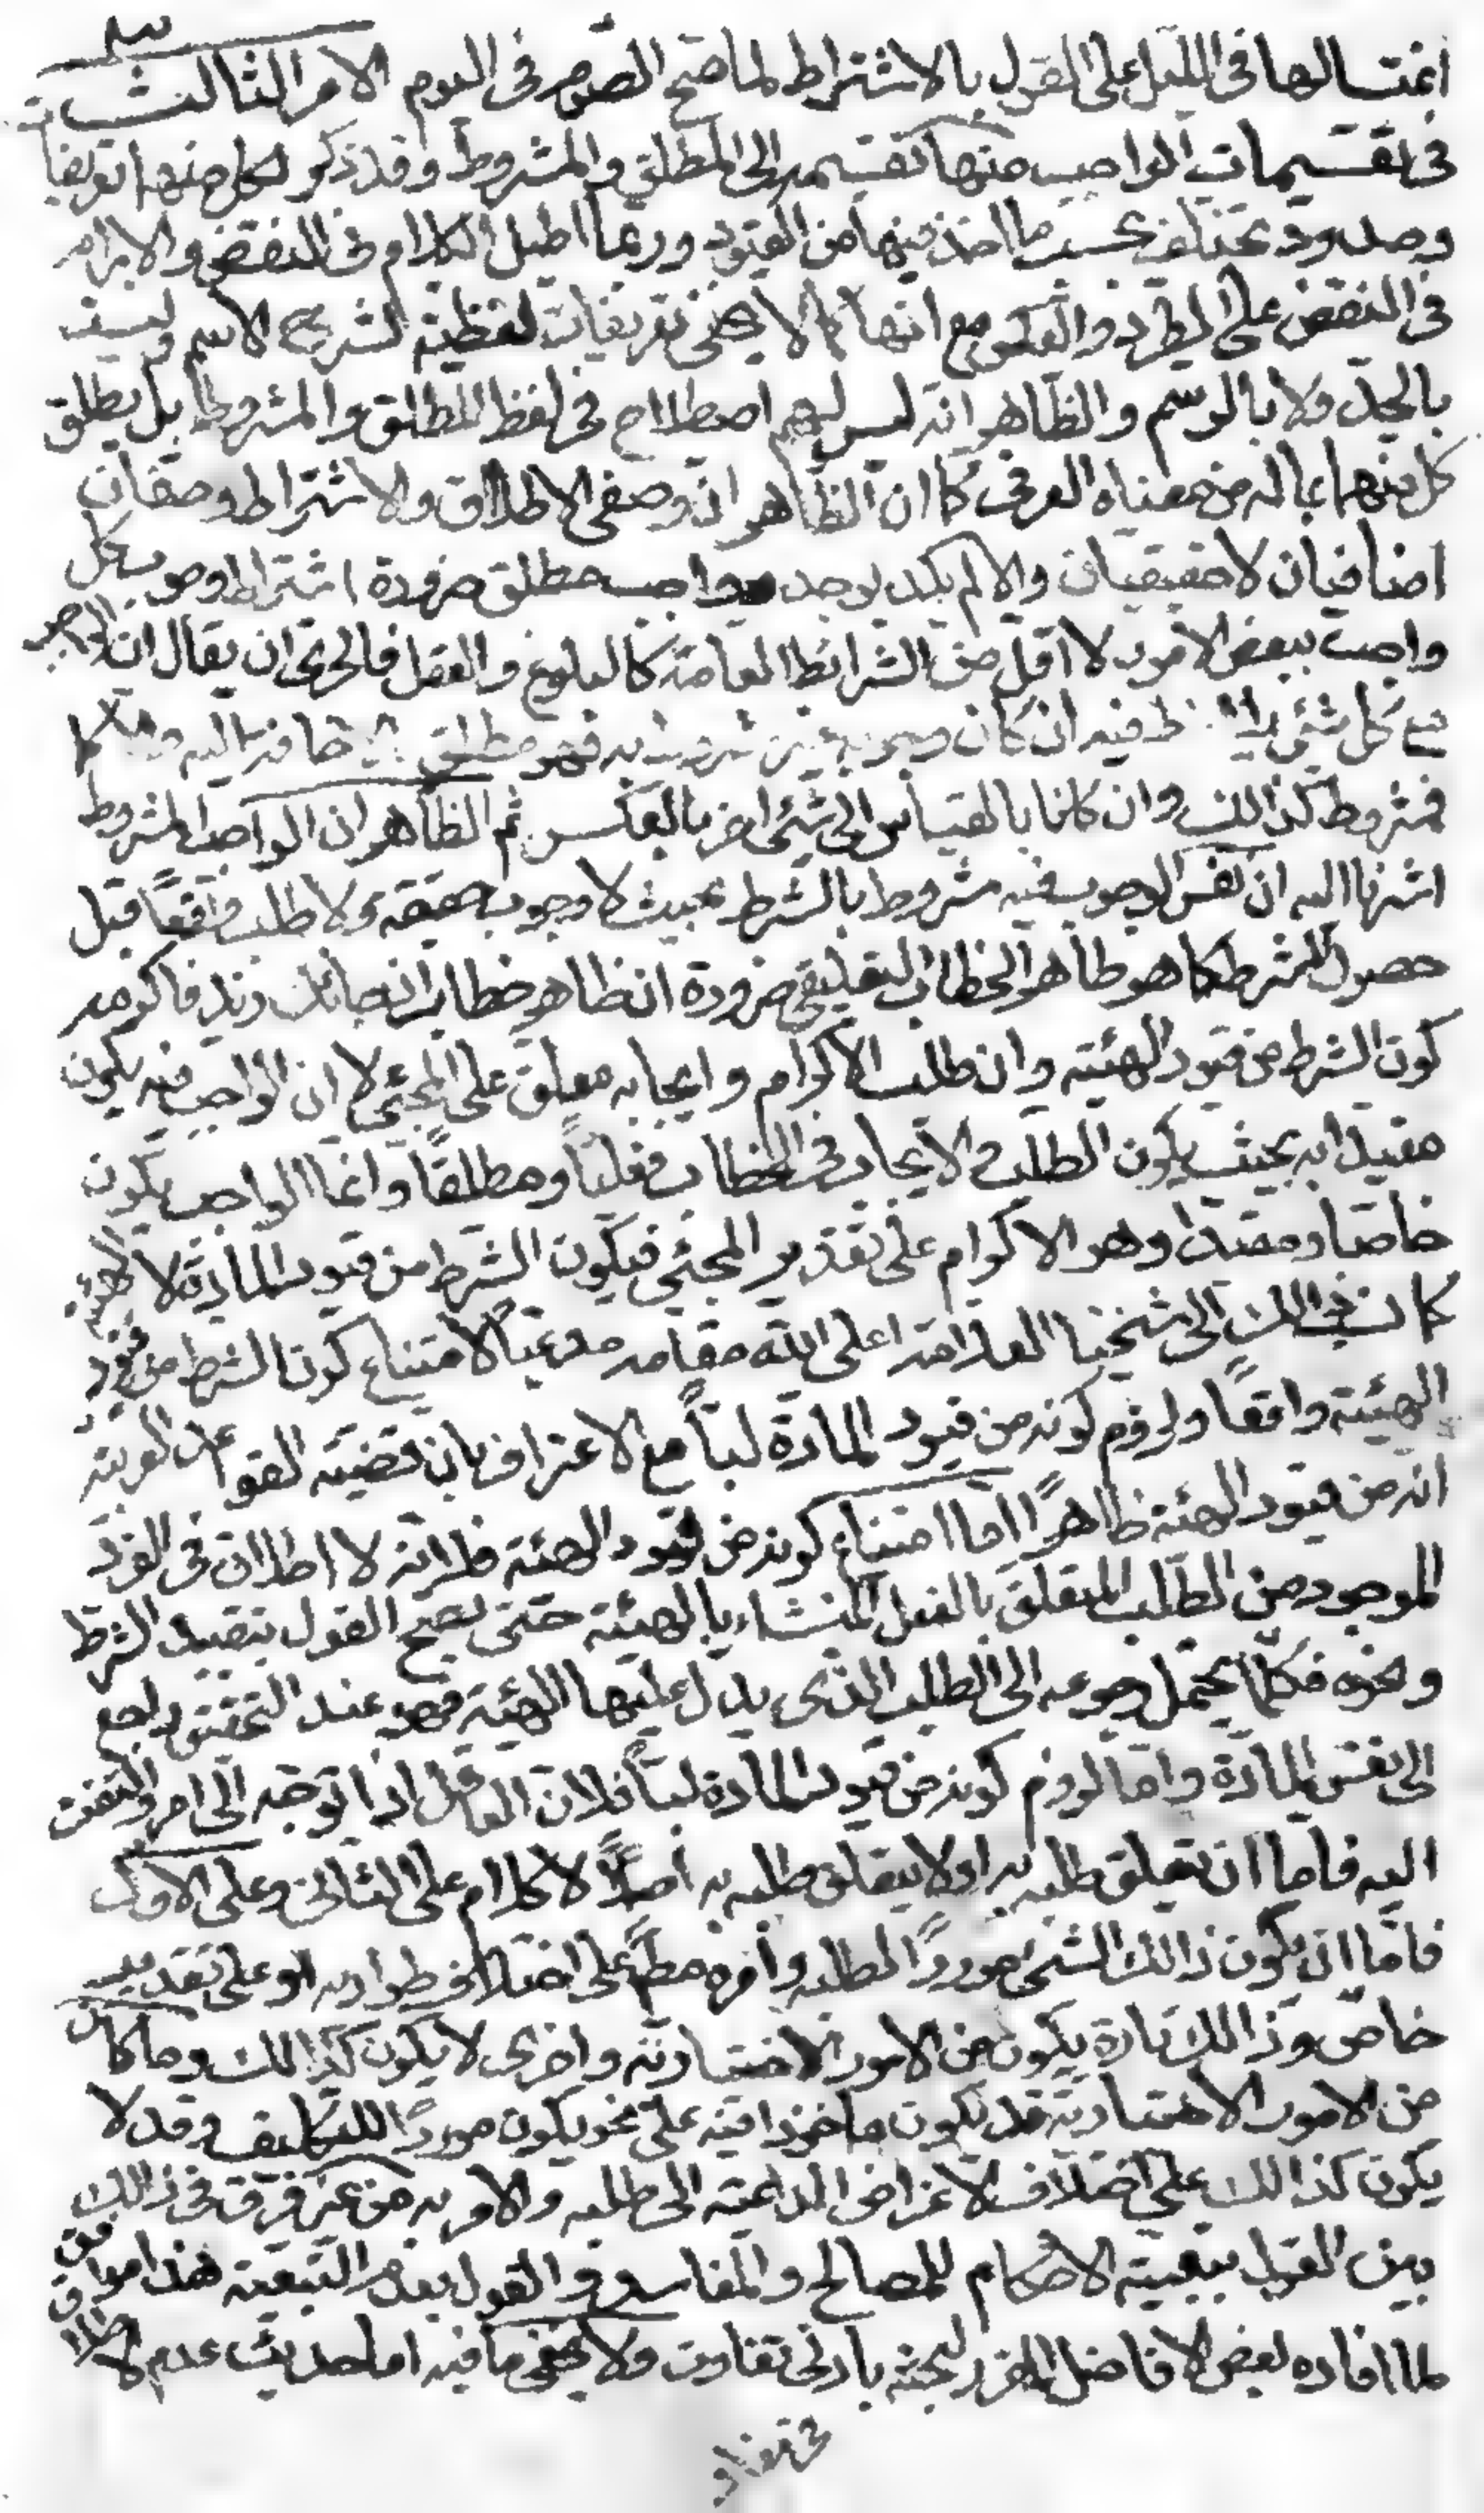 اغتسالها فى الليل على القول بالاشتراط لما صح الصوم فى اليوم الامر الثالث
فى تقسيمات الواجب منها تقسيمه الى المطلق والمشروط وقد ذكر لكل منهما تعريفات
وحدود تختلف بحسب ما اخذ فيها من القيود وربما اطيل الكلام فى النقض والابرام
فى النقض على الطرد والعكس مع انها كما لا يخفى تعريفات لفظية لشرح الاسم وليست
بالحد ولا بالرسم والظاهر انه ليس لهم اصطلاح فى لفظ المطلق والمشروط بل يطلق
كل منهما بماله من معناه العرفى كما ان الظاهر ان وصفى الاطلاق والاشتراط وصفان
اضافيان لا حقيقيان والا لم يكد يوجد واجب مطلق ضرورة اشتراط وجوب كل
واجب ببعض الامور لا اقل من الشرائط العامة كالبلوغ والعقل فالحرى ان يقال ان الواجب
مع كل شئ يلاحظ فيه ان كان وجوبه غير مشروط به فهو مطلق بالاضافة اليه والا
فمشروط كذالك وان كانا بالقياس الى شئ اخر بالعكس ثم الظاهر ان الواجب المشروط كما
اشرنا اليه ان نفس الوجوب فيه مشروط بالشرط بحيث لا وجوب حقيقة ولا طلب واقعًا قبل
حصول الشرط كما هو ظاهر الخطاب التعليقى ضرورة ان ظاهر خطاب ان جائك زيد فاكرمه
كون الشرط من قيود الهيئة وان طلب الاكرام وايجابه معلق على المجئ لا ان الواجب فيه يكون
مقيدا به بحيث يكون الطلب والايجاب فى الخطاب فعليًا ومطلقًا وانما الواجب يكون
خاصا ومقيدا وهو الاكرام على تقدير المجئ فيكون الشرط من قيود المادة لا الهيئة
كما نسب ذالك الى شيخنا العلامة اعلى الله مقامه مدعيًا لامتناع كون الشرط من قيود
الهيئة واقعًا ولزوم كونه من قيود المادة لبًا مع الاعتراف بان قضية القواعد العربية
انه من قيود الهيئة ظاهرًا اما امتناع كونه من قيود الهيئة فلانه لا اطلاق فى الفرد
الموجود من الطلب المتعلق بالفعل المنشاء بالهيئة حتى يصح القول بتقييد الشرط
ونحوه فكلما يحتمل رجوعه الى الطلب الذى يدل عليها الهيئة فهو عند التحقيق راجع
الى نفس المادة واما لزوم كونه من قيود المادة لبًا فلان العاقل اذا توجه الى امر والتفت
اليه فاما ان يتعلق طلبه به او لا يتعلق طلبه به اصلًا لا كلام على الثانى وعلى الاول
فاما ان يكون ذالك الشئ موردًا لطلبه وامره مطلقًا على اختلاف طواريه او على تقدير
خاص وذالك تارة يكون من الامور الاختيارية واخرى لا يكون كذالك وما كان
من الامور الاختيارية قد يكون ماخوذا فيه على نحو يكون موردًا للتكليف وقد لا
يكون كذالك على اختلاف الاغراض الداعية الى طلبه والامر به من غير فرق فى ذالك
بين القول بتبعية الاحكام للمصالح والمفاسد والقول بعدم التبعية هذا موافق
لما افاده بعض الافاضل المقرر لبحثه بادنى تفاوت ولا يخفى ما فيه اما حديث عدم الاطلاق